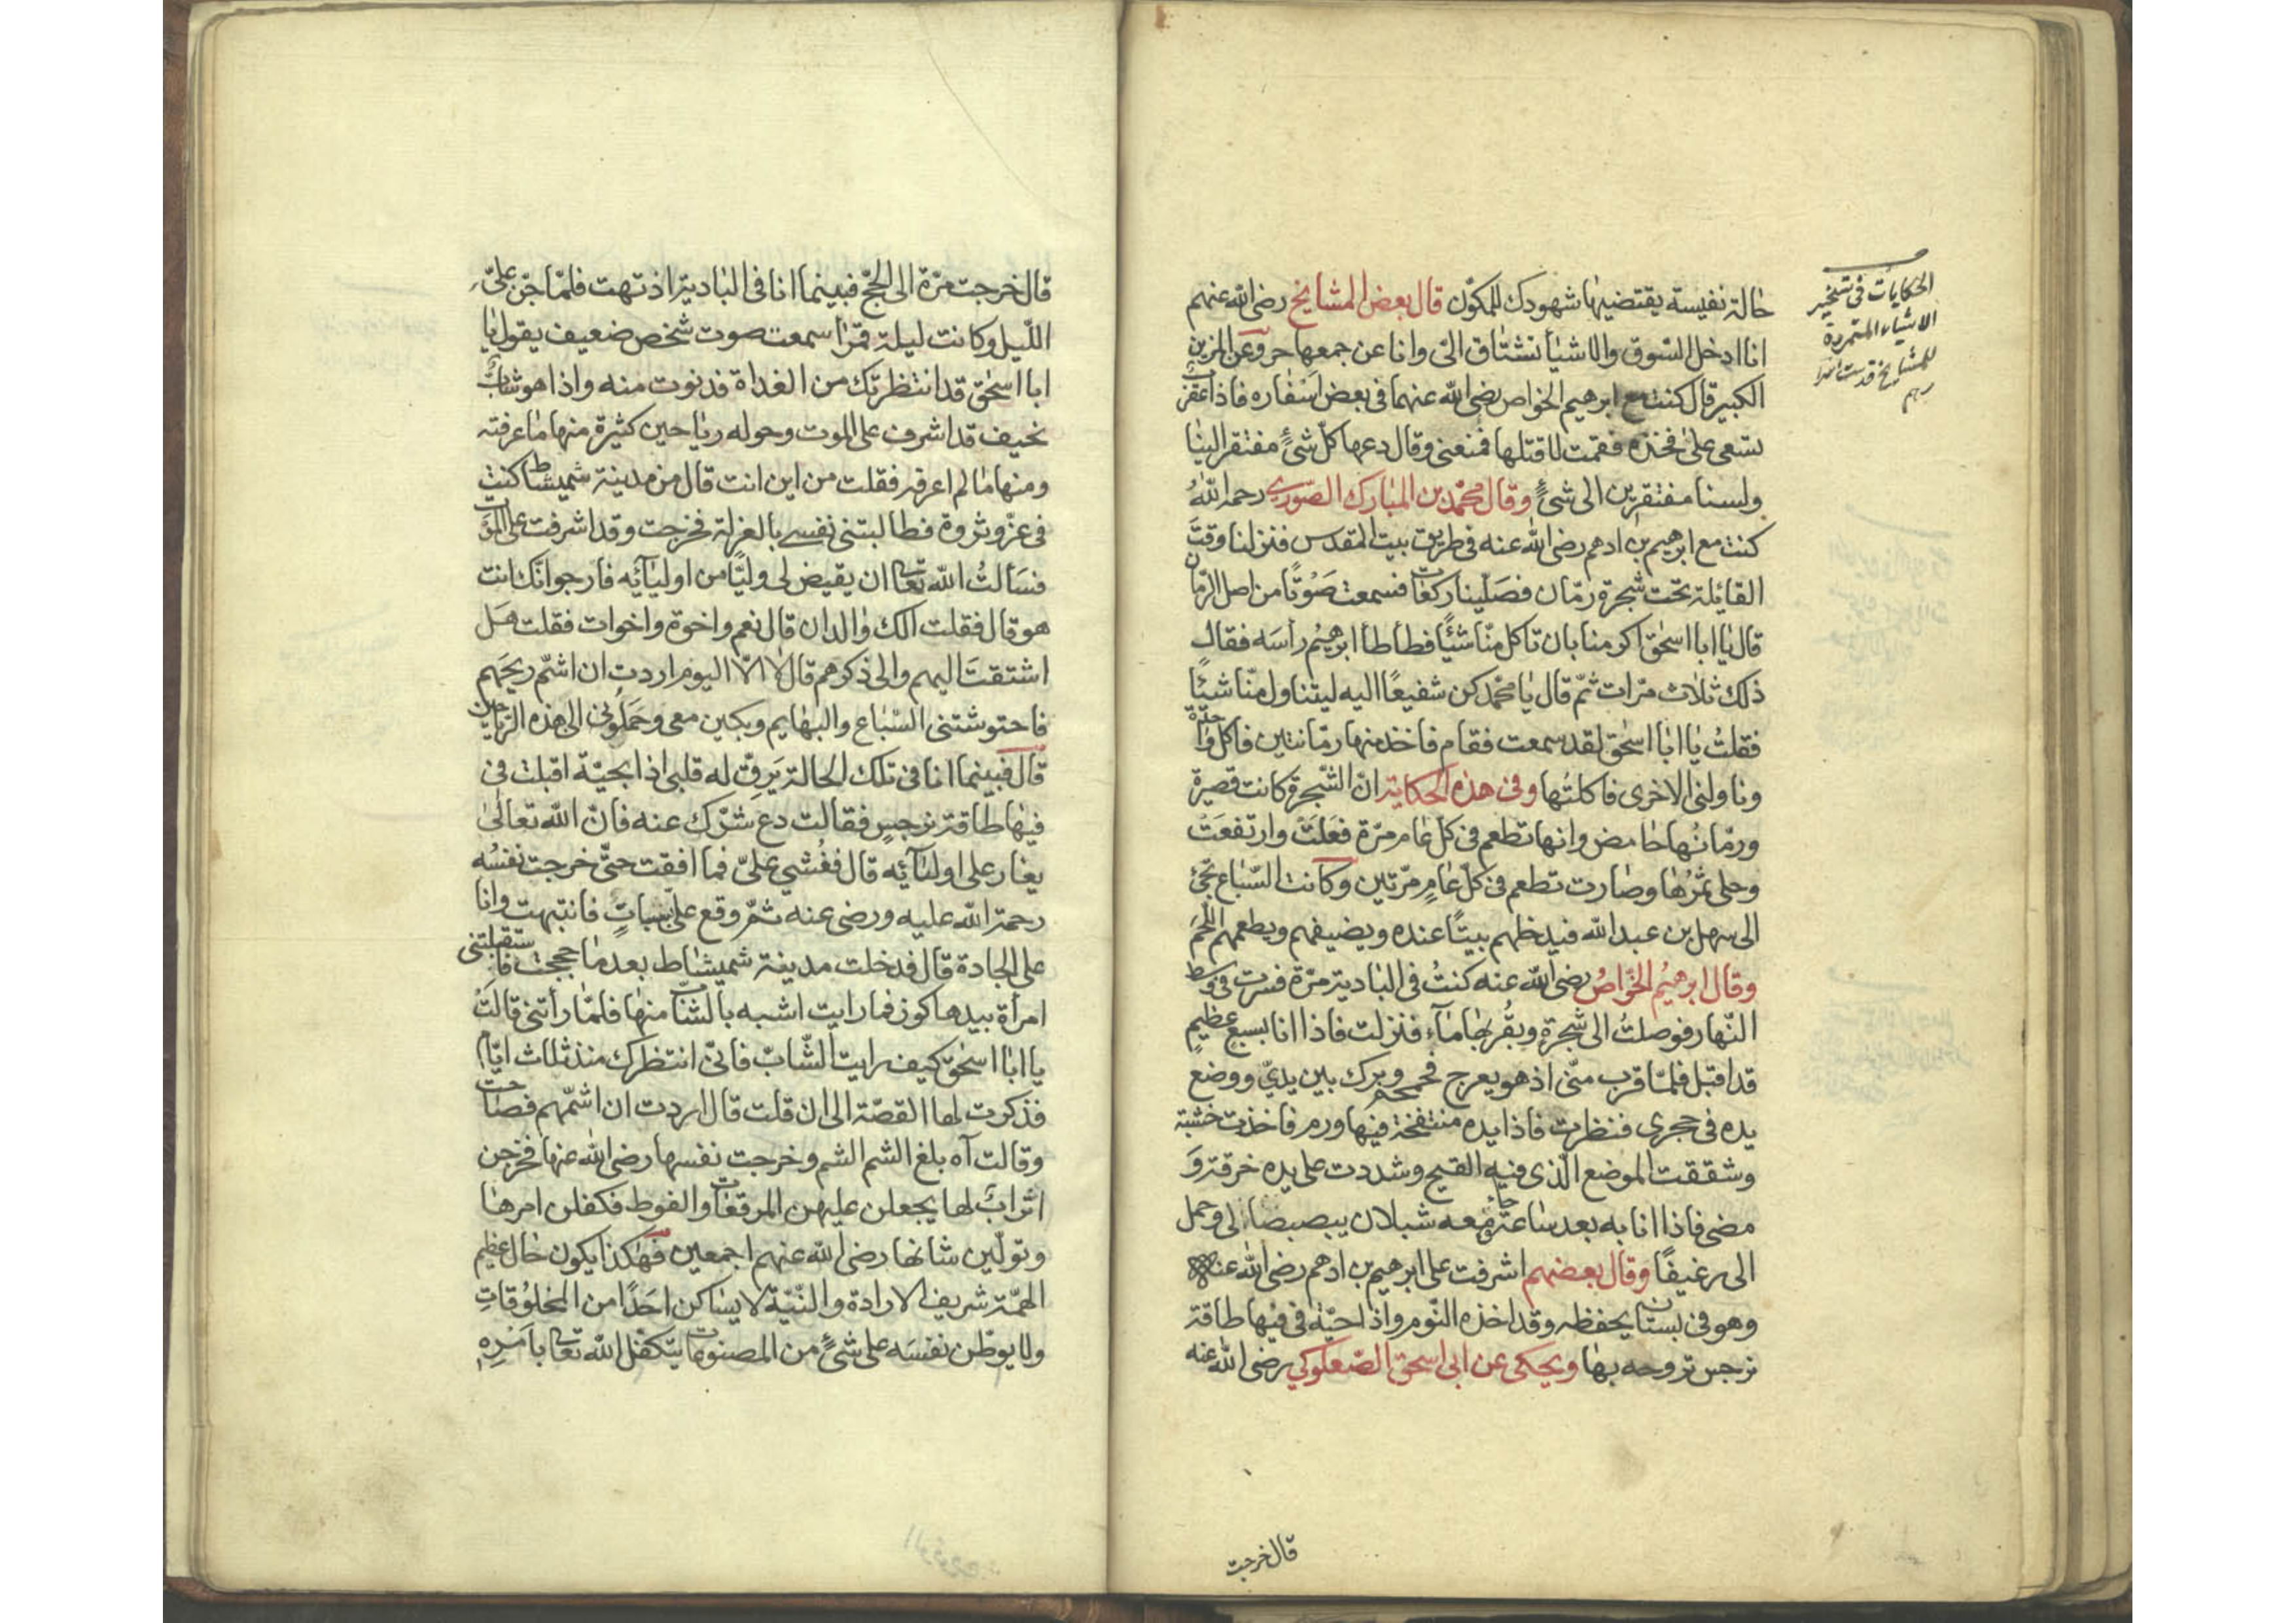 الحكايات في تسخير
الاشياء المتمردة
للمشايخ قدست اسرا
رهم
حالة نفيسة يقتضيها شهودك للمكوّن قال بعض المشايخ رضى الله عنهم
انا ادخل السّوق والاشيأ تشتاق الىّ وانا عن جمعها حر وعن المزين
الكبير قال كنت مع ابرهيم الخواص رضى الله عنهما فى بعض اسفاره فاذا عقرب
تسعى على فخذه فقمت لاقتلها فمنعنى وقال دعها كلّ شئٍ مفتقر الينا
ولسنا مفتقرين الى شئٍ وقال محمّد بن المبارك الصّوري رحمه اللهُ
كنت مع ابرهيم بن ادهم رضى الله عنه فى طريق بيت المقدس فنزلنا وقت
القائلة تحت شجرة رمّان فصلّينا ركعات فسمعت صَوْتًا من اصل الرّمان
قال يا ابا اسحٰق اكرمنا بان تاكل منّا شئًا فطأطأ ابرهيمُ رأسَه فقال
ذلك ثلاث مرّات ثمّ قال يا محمّد كن شفيعًا اليه ليتناول منّا شيئًا
فقلتُ يا ابا اسحٰق لقد سمعت فقام فاخذ منها رمّانتين فاكل واحدة
وناولنى الاخرى فاكلتُها وفى هذه الحكاية انّ الشّجرة كانت قصيرة
ورمّانُها حامض وانها تطعم فى كل عام مرّة فعَلَتْ وارتفعَتْ
وحلى ثمرُها وصارت تطعم فى كلّ عامٍ مرّتين وكانت السّباع تجئ
الى سهل بن عبد الله فيدخلهم بيتًا عنده ويضيفهم ويطعمهم اللّحمَ
وقال ابرهيمُ الخوّاصُ رضى الله عنه كنتُ فى البادية مرّة فسرت فى وسط
النّهار فوصلتُ الى شجرةٍ وبقُربها مآء فنزلت فاذا انا بسبعٍ عظيمٍ
قد اقبل فلمّا قرب منّى اذ هو يعرج فحمحم وبرك بين يديّ ووضع
يده فى حجرى فنظرت فاذا يده منتفخة فيها ورم فاخذت خشبة
وشققت الموضع الّذى فيه القيح وشددت على يده خرقة وَ
مضى فاذا انا به بعد ساعة جاء ومعه شبلان يبصبصان لى وحمل
الى رغيفًا وقال بعضهم اشرفت على ابرهيم بن ادهم رضى الله عنه
وهو فى بستان يحفظه وقد اخذه النّوم واذا حيّة فى فيها طاقة
نرجس تروحه بها ويحكى عن ابى اسحٰق الصّعلوكي رضى الله عنه
قال خرجت
قال خرجت مرّة الى الحجّ فبينما انا فى البادية اذ تهت فلمّا جنّ علىّ
اللّيل وكانت ليلة قمرًا سمعت صوت شخص ضعيف يقول يا
ابا اسحٰق قد انتظرتك من الغداة فدنوت منه واذا هو شابٌّ
نحيف قد اشرف على الموت وحوله رياحين كثيرة منها ما عرفته
ومنها ما لم اعرفه فقلت من اين انت قال من مدينة شميشاط كنت
فى عزّ وثروة فطالبتنى نفسى بالعزلة فخرجت وقد اشرفت على الموت
فسَألتُ اللّه تعالى ان يقيض لى وليًّا من اوليآئه فارجو انّك انت
هو قال فقلت الك والدان قال نعم واخوة واخوات فقلت هل
اشتقتَ اليهم والى ذكرهم قال لا الّا اليوم اردت ان اشمّ ريحَهم
فاحتوشتنى السّباع والبهايم وبكين معى وحَملُونى الى هذه الرّياحين
قال فبينما انا فى تلك الحالة يَرِقّ له قلبى اذا بحيّة اقبلت فى
فيها طاقة نرجسٍ فقالت دع شرّك عنه فانّ الله تعالىٰ
يغار على اوليآئه قال فغُشي علىّ فما افقت حتّى خرجت نفسُه
رحمة اللّه عليه ورضى عنه ثمّ وقع علىّ سباتٍ فانتبهت وانا
على الجادة قال فدخلت مدينة شميشاط بعد ما حججت فاستقبلتنى
امرأة بيدها كوز فما رايت اشبه بالشّاب منها فلمّا رأتنى قالَتْ
يا ابا اسحٰق كيف رايت الشّابّ فانّى انتظرك منذ ثلاث ايّام
فذكرت لها القصّة الى ان قلت قال اردت ان اشمّهم فصاحت
وقالت آه بلغ الشم الشم وخرجت نفسها رضى الله عنها فخرجن
اترابٌ لها يجعلن عليهن المرقعات والفوط فكفلن امرها
وتولّين شانها رضى الله عنهم اجمعين فهكذا يكون حال عظيم
الهمّة شريف الارادة والنّيّة لا يساكن احَدًا من المخلُوقاتِ
ولا يوطّن نفسَه على شئٍ من المصنوعات يتكفّل اللّه تعالى بامرِه